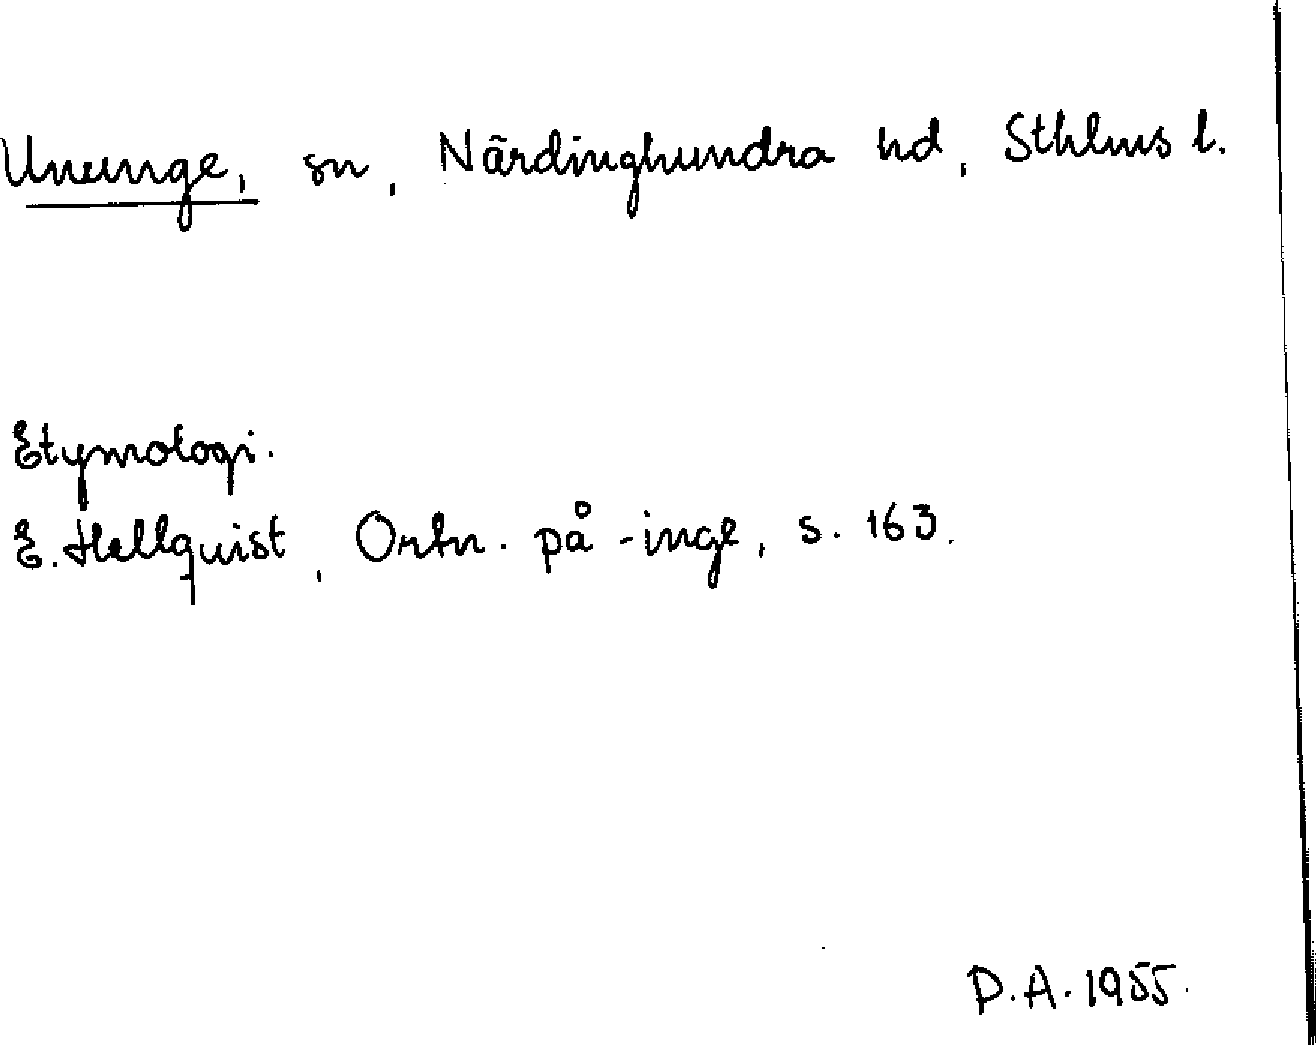 Ununge, sn, Närdinghundra hd, Sthlms l.
Etymologi.
E. Hellquist, Ortn. på -inge, s. 163.
D.A. 1955.